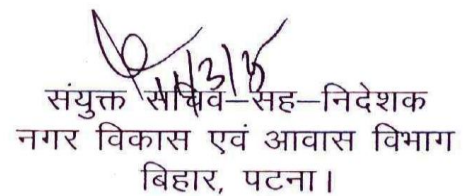 11/3/15
संयुक्त सचिव–सह–निदेशक
नगर विकास एवं आवास विभाग
बिहार, पटना।